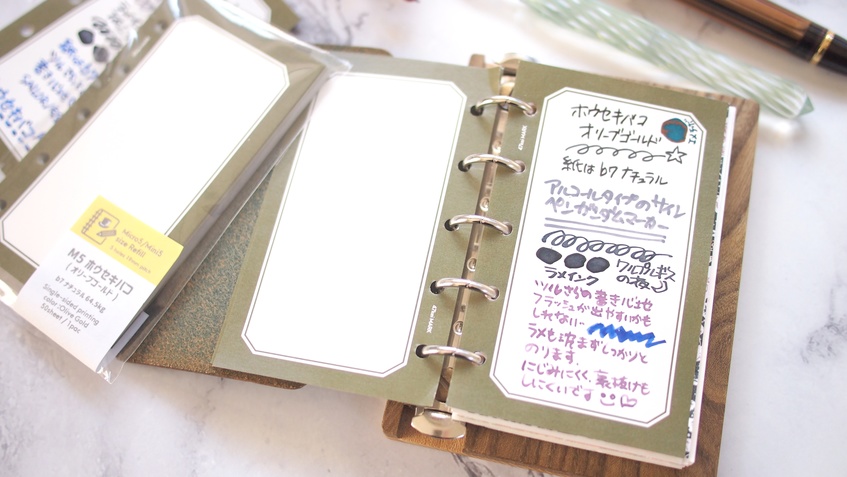 Micro5/Mini5
size Refill
M5 ホウセキバコ
(オリーブゴールド)
b7 ナチュラル 64.5kg
Single-sided printing
color :Olive Gold
50sheet / 1pac
ホウセキバコ
オリーブゴールド
紙は b7 ナチュラル
アルコールタイプのサイン
ペン ガンダムマーカー
ワルプルギス
の夜
ラメインク
ツルさらの書き心地
フラッシュが出やすいかも
しれない。
ラメも沈まずしっかりと
のります。
にじみにくく、裏抜けも
しにくいです